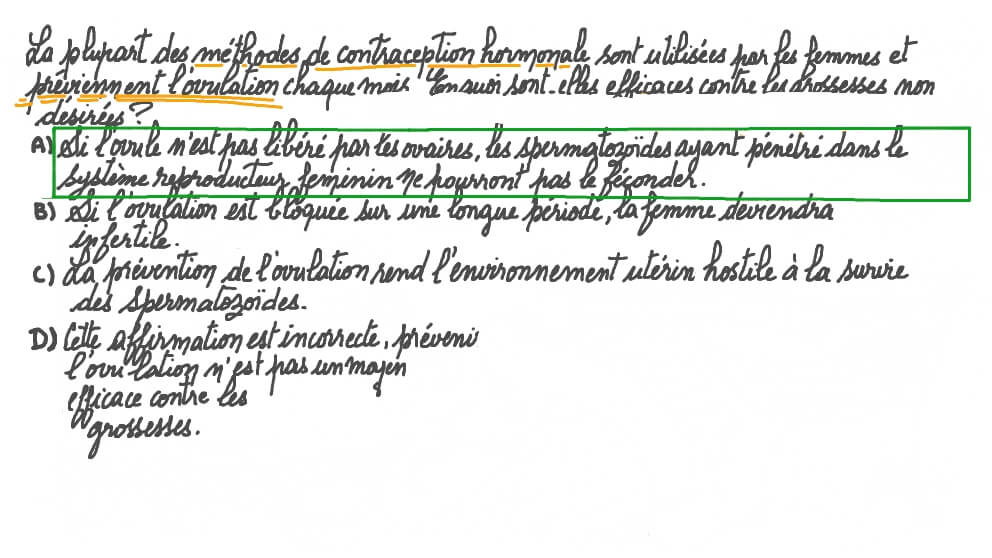 La plupart des méthodes de contraception hormonale sont utilisées par les femmes et
préviennent l'ovulation chaque mois. En quoi sont-elles efficaces contre les grossesses non
désirées?
A) Si l'ovule n'est pas libéré par les ovaires, les spermatozoïdes ayant pénétré dans le
système reproducteur feminin ne pourront pas le féconder.
B) Si l'ovulation est bloquée sur une longue période, la femme deviendra
infertile.
C) La prévention de l'ovulation rend l'environnement utérin hostile à la survie
des spermatozoïdes.
D) Cette affirmation est incorrecte, prévenir
l'ovulation n'est pas un moyen
efficace contre les
grossesses.